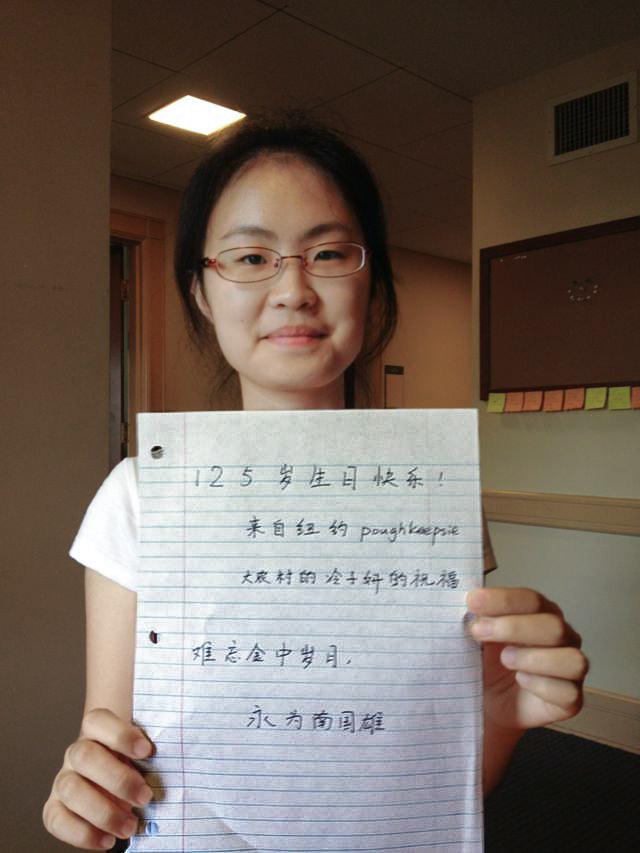 125岁生日快乐！
来自纽约 poughkeepsie
大农村的冷子轩的祝福
难忘金中岁月，
永为南国雄